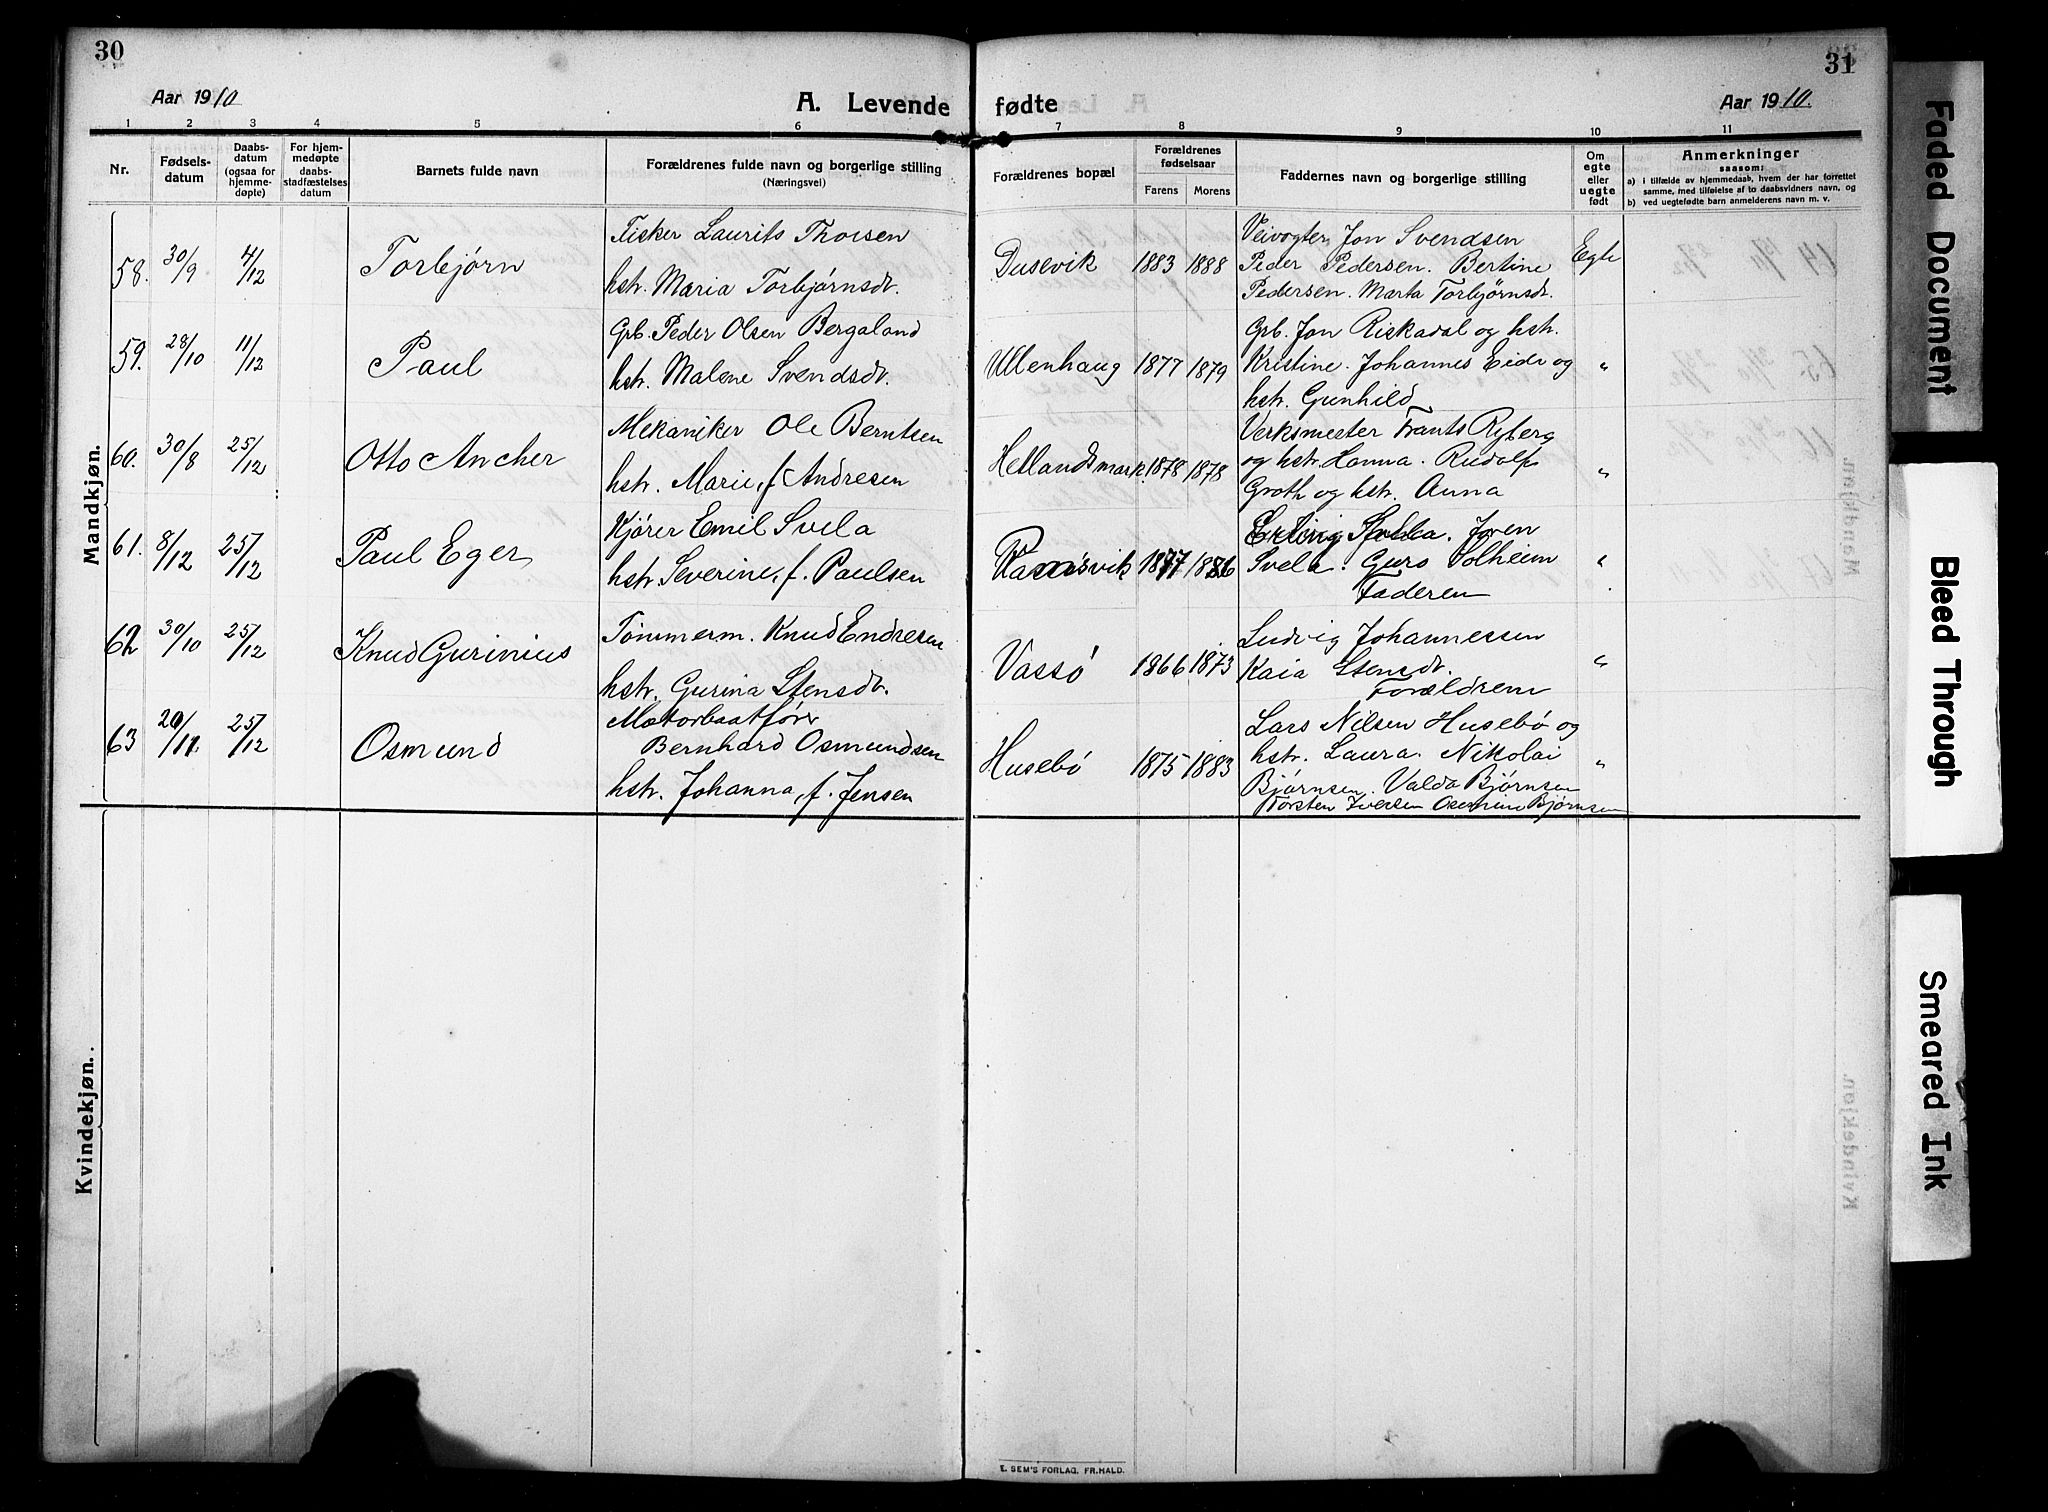 30
31
Aar 1910
A. Levende fødte
Aar 1910.
1 2 3 4 5 6 7 8 9 10 11
Nr.
Fødsels-
datum
Daabs-
datum
(ogsaa for
hjemme-
døpte)
For hjem-
medøpte
daabs-
stadfæstelses
datum
Barnets fulde navn
Forældrenes fulde navn og borgerlige stilling
(Næringsvei)
Forældrenes bopæl
Forældrenes
fødselsaar
Farens Morens
Faddernes navn og borgerlige stilling
Om
egte
eller
uegte
født
Anmerkninger
saasom:
a) i tilfælde av hjemmedaab, hvem der har forrettet
samme, med tilføielse af to daabsvidners navn, og
b) ved uegtefødte barn anmelderens navn m. v.
Mandkjøn.
58. 30/9 4/12 Torbjørn
Fisker Laurits Thorsen
hstr. Maria Torbjørnsdt.
Dusevik 1883 1888
Veivogter Jon Svendsen
Peder Pedersen. Bertine
Pedersen. Marta Torbjørnsdt.
Egte
59. 28/10 11/12 Paul
Grb. Peder Olsen Bergaland
hstr. Malene Svendsdt.
Ullenhaug 1877 1879
Grb. Jon Riskadal og hstr.
Kristine. Johannes Eide og
hstr. Gunhild
"
60. 30/8 25/12 Otto Ancher
Mekaniker Ole Berntsen
hstr. Marie, f. Andresen
Hellandsmark. 1878 1878
Verksmester Frants Ryberg
og hstr. Hanna. Rudolf
Groth og hstr. Anna
"
61. 8/12 25/12 Paul Eger
Kjører Emil Svela
hstr. Severine, f. Paulsen
1877 1886
Svela. Iven
Svela. Guro Solheim
Faderen
"
62 30/10 25/12 Knud Gurinius
Tømmerm. Knud Endresen
hstr. Gurina Stensdt.
Vassø 1866 1873
Ludvig Johannessen
Kaia Stensdt.
Forældrene
"
63 20/11. 25/12 Osmund
Motorbaatfører
Bernhard Osmundsen
hstr. Johanna, f. Jensen
Husebø 1875 1883
Lars Nilsen Husebø og
hstr. Laura. Nikolai
Bjørnsen. Valda Bjørnsen
Torsten Iversen Osmund Bjørnsen
"
Kvindekjøn.
E. SEM'S FORLAG, FR.HALD.
Faded Document
Bleed Through
Smeared Ink